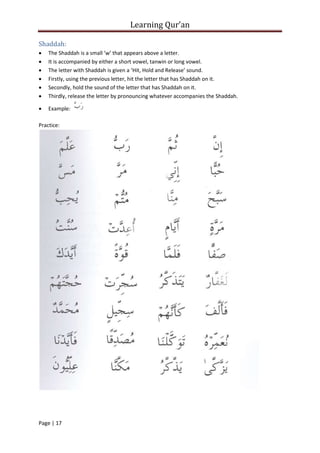 Learning Qur'an
Shaddah:
• The Shaddah is a small 'w' that appears above a letter.
• It is accompanied by either a short vowel, tanwin or long vowel.
• The letter with Shaddah is given a 'Hit, Hold and Release' sound.
• Firstly, using the previous letter, hit the letter that has Shaddah on it.
• Secondly, hold the sound of the letter that has Shaddah on it.
• Thirdly, release the letter by pronouncing whatever accompanies the Shaddah.
• Example: رَبُّ
Practice:
إِنَّ ثُمَّ رَبُّ عَلَّمَ
حُبًّا إِنِّي مَرَّ مَسَّ
سَبَّحَ مِنَّا مُتُّمْ يُحِبُّ
مَرَّةٍ أَيَّامٍ أُعِدَّتْ سُنَّتُ
صَفًّا فَلَمَّا قُوَّةً أَيَّدَكَ
لَغَفَّارٌ يَتَذَكَّرُ سُجِّرَتْ حُجَّتُهُمْ
فَأَلَّفَ كَأَنَّهُمْ سِجِّيلٍ مُحَمَّدٌ
نُعَمِّرْهُ تَوَكَّلْنَا مُصَدِّقًا فَأَيَّدْنَا
يَزَّكَّىٰ يَذَّكَّرُ مَكَّنَّا عِلِّيُّونَ
Page | 17